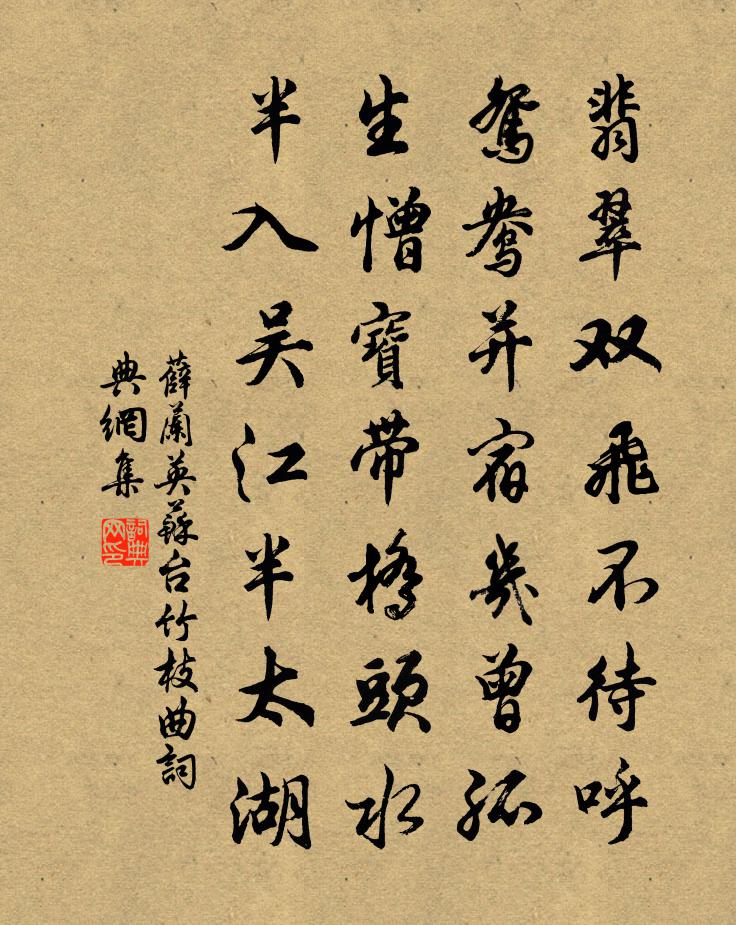 翡翠双飛不待呼
鴛鴦并宿幾曾孤
生憎寶帶橋頭水
半入吴江半太湖
薛蘭英蘇台竹枝曲詞
典網集
詞典
网印